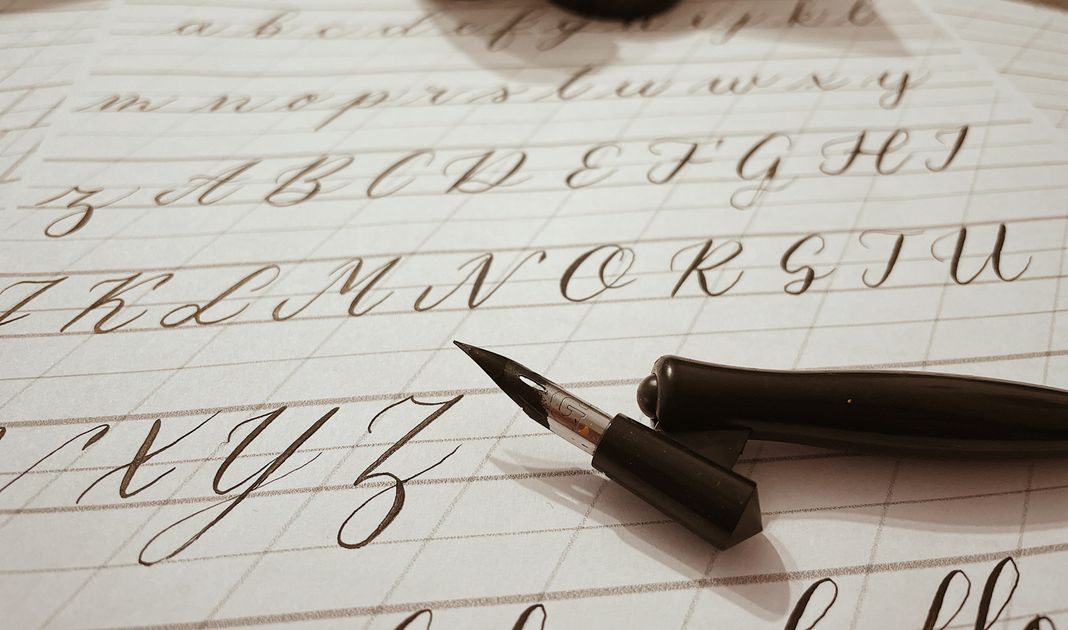 a b c d e f g i j k l
m n o p r s t u w x y
z A B C D E F G H I
J K L M N O R S T U
X Y Z
G